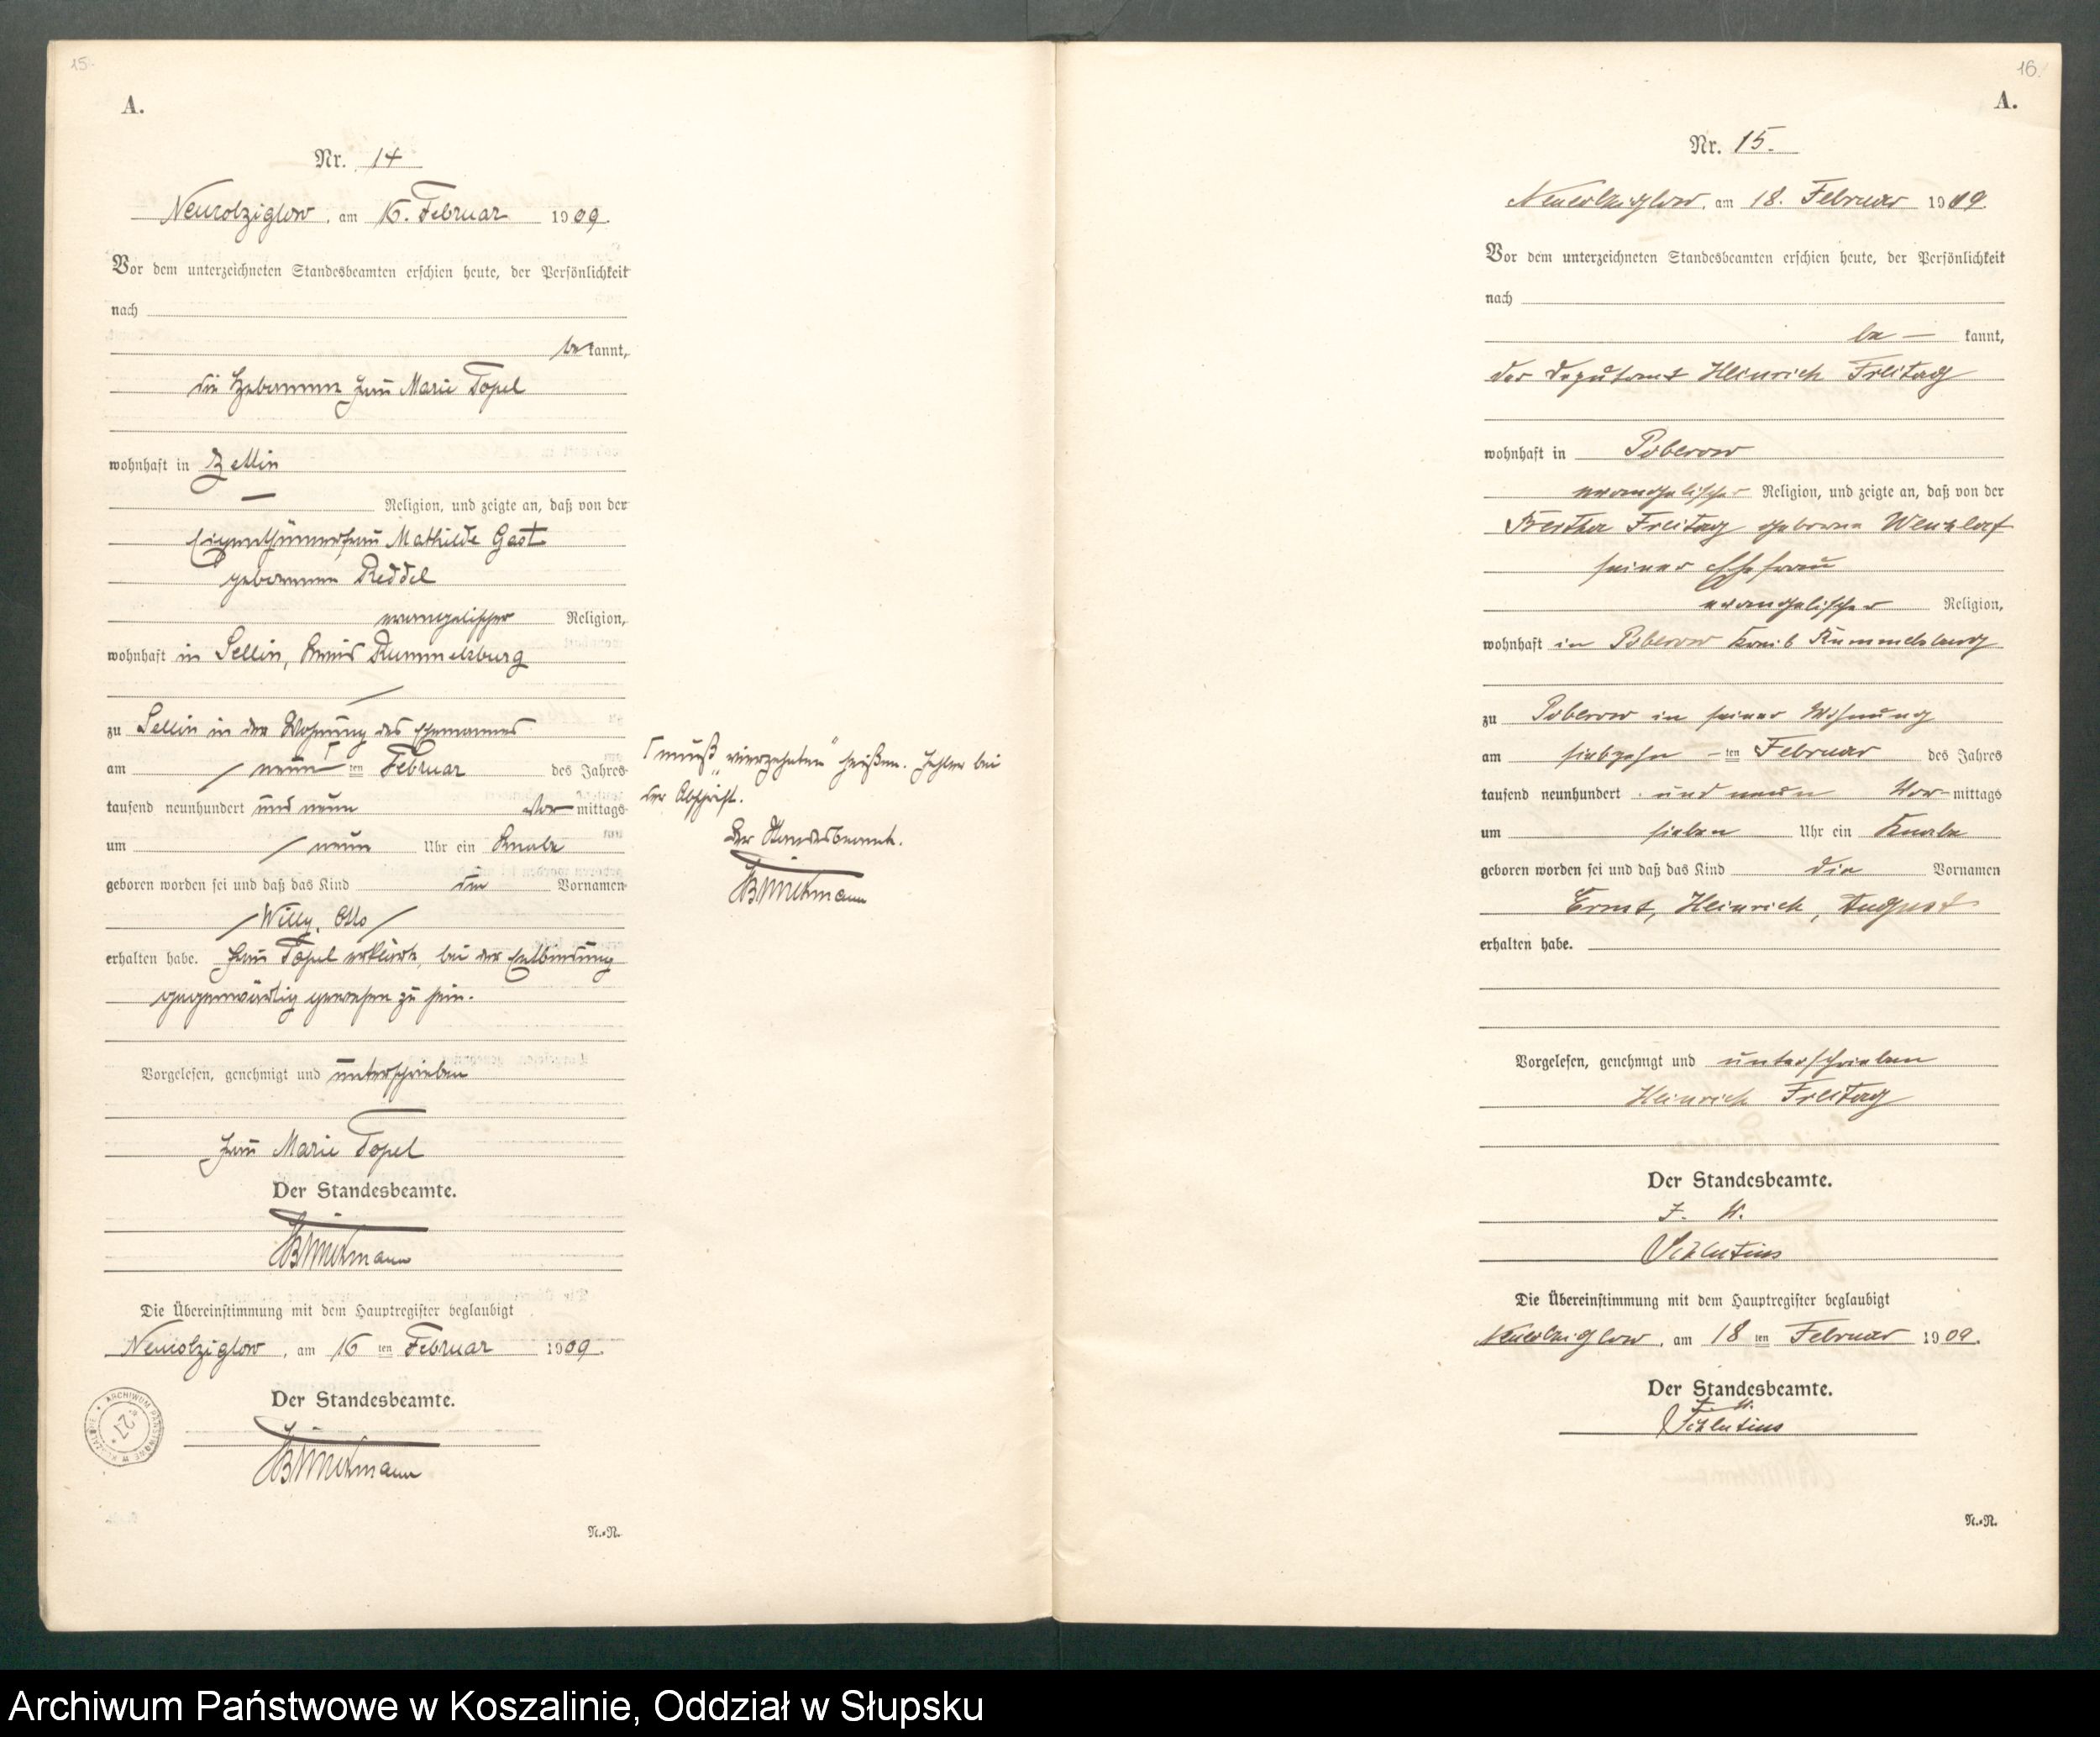 15.
A.
Nr. 14
Neukolziglow, am 16. Februar 1909.
Vor dem unterzeichneten Standesbeamten erschien heute, der Persönlichkeit
nach
be kannt,
die Hebamme Frau Marie Topel
wohnhaft in Zellin
Religion, und zeigte an, daß von der
Eigenthümerfrau Mathilde Gast
geborenen Reddel
evangelischer Religion,
wohnhaft in Sellin, Kreis Rummelsburg
zu Sellin in der Wohnung des Ehemannes
am neun ten Februar des Jahres
tausend neunhundert und neun Vor mittags
um neun Uhr ein Knabe
geboren worden sei und daß das Kind die Vornamen
Willy, Otto
erhalten habe. Frau Topel erklärte, bei der Entbindung
gegenwärtig gewesen zu sein.
Vorgelesen, genehmigt und unterschrieben
Frau Marie Topel
Der Standesbeamte.
Die Übereinstimmung mit dem Hauptregister beglaubigt
Neukolziglow, am 16 ten Februar 1909.
Der Standesbeamte.
ARCHIWUM PAŃSTWOWE W KOSZALINIE
27
N.-N.
Γ muß „vierzehnten“ heißen. Fehler bei
der Abschrift.
Der Standesbeamte.
16.
A.
Nr. 15.
Neukolziglow, am 18. Februar 1909.
Vor dem unterzeichneten Standesbeamten erschien heute, der Persönlichkeit
nach
be — kannt,
der Deputant Heinrich Freitag
wohnhaft in Poberow
evangelischer Religion, und zeigte an, daß von der
Bertha Freitag geborene Wenzlaf
seiner Ehefrau
evangelischer Religion,
wohnhaft in Poberow Kreis Rummelsburg
zu Poberow in seiner Wohnung
am siebzehn ten Februar des Jahres
tausend neunhundert und neun Vor mittags
um sieben Uhr ein Knabe
geboren worden sei und daß das Kind die Vornamen
Ernst, Heinrich, August
erhalten habe.
Vorgelesen, genehmigt und unterschrieben
Heinrich Freitag
Der Standesbeamte.
J. V.
Die Übereinstimmung mit dem Hauptregister beglaubigt
Neukolziglow, am 18 ten Februar 1909.
Der Standesbeamte.
J. V.
N.-N.
Archiwum Państwowe w Koszalinie, Oddział w Słupsku